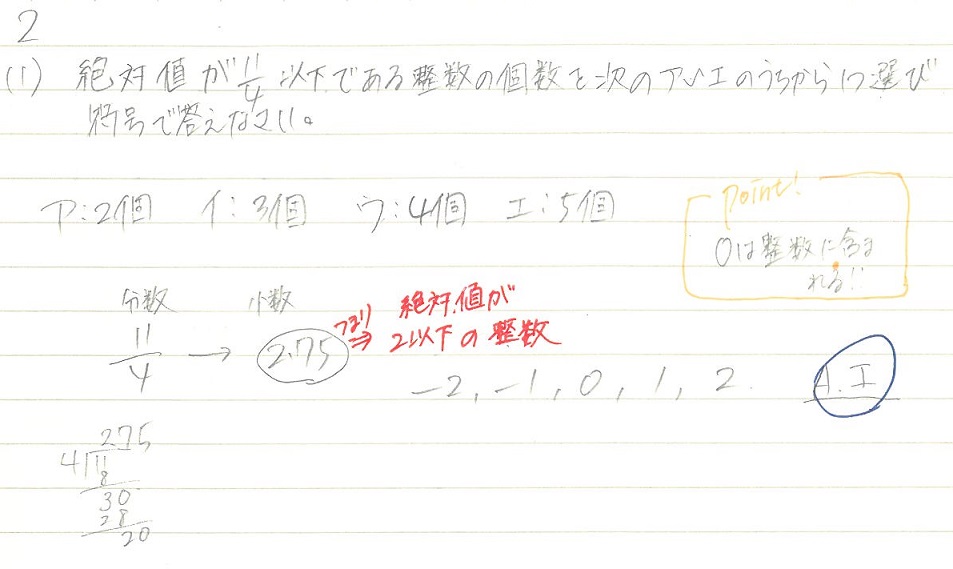 2
(1) 絶対値が11/4以下である整数の個数を次のア~エのうちから1つ選び
符号で答えなさい。
ア:2個 イ:3個 ウ:4個 エ:5個
Point!
0は整数に含ま
れる!!
分数 小数
11/4 → 2.75
つまり ⇒ 絶対値が
2以下の整数
-2, -1, 0, 1, 2.
A. エ
275
4)11
8
30
28
20